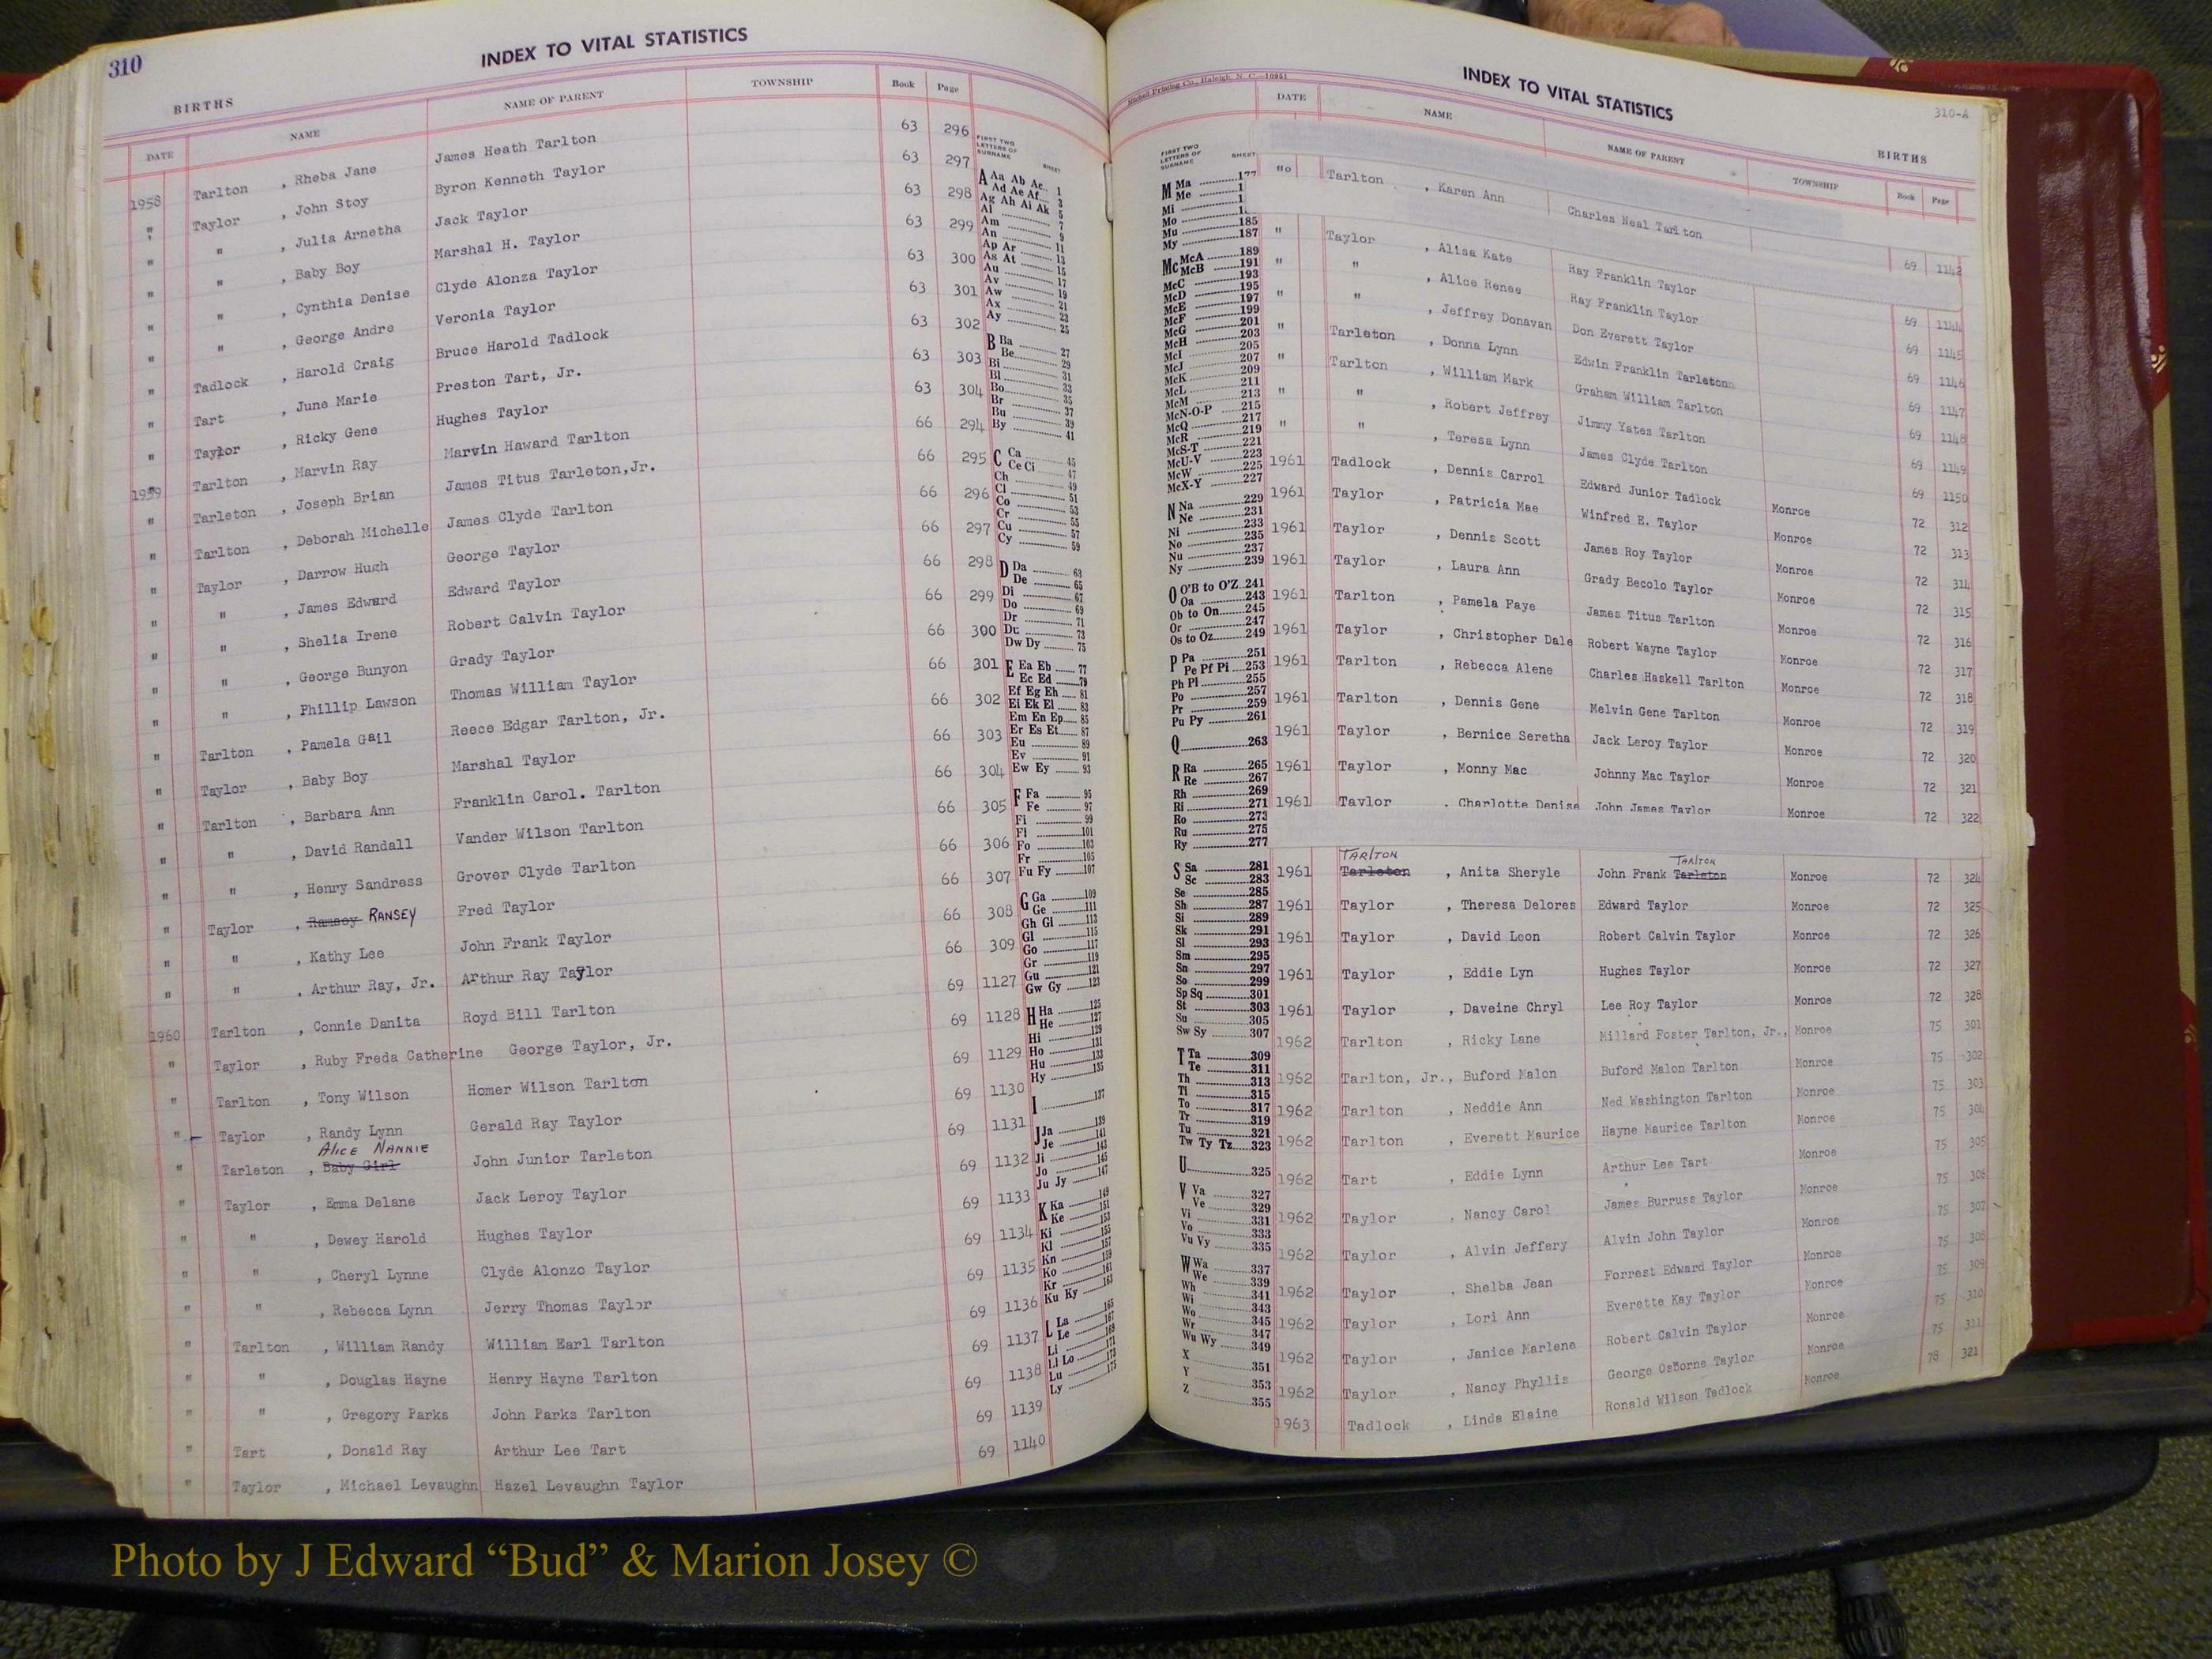 310
INDEX TO VITAL STATISTICS
BIRTHS
DATE NAME NAME OF PARENT TOWNSHIP Book Page
1958 Tarlton , Rheba Jane James Heath Tarlton 63 296
" Taylor , John Stoy Byron Kenneth Taylor 63 297
" " , Julia Arnetha Jack Taylor 63 298
" " , Baby Boy Marshal H. Taylor 63 299
" " , Cynthia Denise Clyde Alonza Taylor 63 300
" " , George Andre Veronia Taylor 63 301
" Tadlock , Harold Craig Bruce Harold Tadlock 63 302
" Tart , June Marie Preston Tart, Jr. 63 303
" Taylor , Ricky Gene Hughes Taylor 63 304
1959 Tarlton , Marvin Ray Marvin Haward Tarlton 66 294
" Tarleton , Joseph Brian James Titus Tarleton,Jr. 66 295
" Tarlton , Deborah Michelle James Clyde Tarlton 66 296
" Taylor , Darrow Hugh George Taylor 66 297
" " , James Edward Edward Taylor 66 298
" " , Shelia Irene Robert Calvin Taylor 66 299
" " , George Bunyon Grady Taylor 66 300
" " , Phillip Lawson Thomas William Taylor 66 301
" Tarlton , Pamela Gail Reece Edgar Tarlton, Jr. 66 302
" Taylor , Baby Boy Marshal Taylor 66 303
" Tarlton , Barbara Ann Franklin Carol. Tarlton 66 304
" " , David Randall Vander Wilson Tarlton 66 305
" " , Henry Sandress Grover Clyde Tarlton 66 306
" Taylor , Ramsey RANSEY Fred Taylor 66 307
" " , Kathy Lee John Frank Taylor 66 308
" " , Arthur Ray, Jr. Arthur Ray Taylor 66 309
1960 Tarlton , Connie Danita Royd Bill Tarlton 69 1127
" Taylor , Ruby Freda Catherine George Taylor, Jr. 69 1128
" Tarlton , Tony Wilson Homer Wilson Tarlton 69 1129
" Taylor , Randy Lynn Gerald Ray Taylor 69 1130
ALICE NANNIE
" Tarleton , Baby Girl John Junior Tarleton 69 1131
" Taylor , Emma Delane Jack Leroy Taylor 69 1132
" " , Dewey Harold Hughes Taylor 69 1133
" " , Cheryl Lynne Clyde Alonzo Taylor 69 1134
" " , Rebecca Lynn Jerry Thomas Taylor 69 1135
" Tarlton , William Randy William Earl Tarlton 69 1136
" " , Douglas Hayne Henry Hayne Tarlton 69 1137
" " , Gregory Parks John Parks Tarlton 69 1138
" Tart , Donald Ray Arthur Lee Tart 69 1139
" Taylor , Michael Levaughn Hazel Levaughn Taylor 69 1140
FIRST TWO LETTERS OF SURNAME SHEET
A Aa Ab Ac 1
Ad Ae Af 3
Ag Ah Ai Ak 5
Al 7
Am 9
An 11
Ap Ar 13
As At 15
Au 17
Av 19
Aw 21
Ax 23
Ay 25
B Ba 27
Be 29
Bi 31
Bl 33
Bo 35
Br 37
Bu 39
By 41
C Ca 45
Ce Ci 47
Ch 49
Cl 51
Co 53
Cr 55
Cu 57
Cy 59
D Da 63
De 65
Di 67
Do 69
Dr 71
Du 73
Dw Dy 75
E Ea Eb 77
Ec Ed 79
Ef Eg Eh 81
Ei Ek El 83
Em En Ep 85
Er Es Et 87
Eu 89
Ev 91
Ew Ey 93
F Fa 95
Fe 97
Fi 99
Fl 101
Fo 103
Fr 105
Fu Fy 107
G Ga 109
Ge 111
Gh Gi 113
Gl 115
Go 117
Gr 119
Gu 121
Gw Gy 123
H Ha 125
He 127
Hi 129
Ho 131
Hu 133
Hy 135
I 137
J Ja 139
Je 141
Ji 143
Jo 145
Ju Jy 147
K Ka 149
Ke 151
Ki 153
Kl 155
Kn 157
Ko 159
Kr 161
Ku Ky 163
L La 165
Le 167
Li 169
Ll Lo 171
Lu 173
Ly 175
Mitchell Printing Co., Raleigh, N. C.—10951
INDEX TO VITAL STATISTICS
310-A
BIRTHS
DATE NAME NAME OF PARENT TOWNSHIP Book Page
FIRST TWO LETTERS OF SURNAME SHEET
M Ma 177
Me 1
Mi 1
Mo 185
Mu 187
My
Mc McA 189
McB 191
McC 193
McD 195
McE 197
McF 199
McG 201
McH 203
McI 205
McJ 207
McK 209
McL 211
McM 213
McN-O-P 215
McQ 217
McR 219
McS-T 221
McU-V 223
McW 225
McX-Y 227
N Na 229
Ne 231
Ni 233
No 235
Nu 237
Ny 239
O O'B to O'Z 241
Oa 243
Ob to On 245
Or 247
Os to Oz 249
P Pa 251
Pe Pf Pi 253
Ph Pl 255
Po 257
Pr 259
Pu Py 261
Q 263
R Ra 265
Re 267
Rh 269
Ri 271
Ro 273
Ru 275
Ry 277
S Sa 281
Sc 283
Se 285
Sh 287
Si 289
Sk 291
Sl 293
Sm 295
Sn 297
So 299
Sp Sq 301
St 303
Su 305
Sw Sy 307
T Ta 309
Te 311
Th 313
Ti 315
To 317
Tr 319
Tu 321
Tw Ty Tz 323
U 325
V Va 327
Ve 329
Vi 331
Vo 333
Vu Vy 335
W Wa 337
We 339
Wh 341
Wi 343
Wo 345
Wr 347
Wu Wy 349
X 351
Y 353
Z 355
Tarlton , Karen Ann Charles Neal Tarlton 69 1142
" Taylor , Alisa Kate Ray Franklin Taylor 69 1144
" " , Alice Renee Ray Franklin Taylor 69 1145
" " , Jeffrey Donavan Don Everett Taylor 69 1146
" Tarleton , Donna Lynn Edwin Franklin Tarleton 69 1147
" Tarlton , William Mark Graham William Tarlton 69 1148
" " , Robert Jeffrey Jimmy Yates Tarlton 69 1149
" " , Teresa Lynn James Clyde Tarlton 69 1150
1961 Tadlock , Dennis Carrol Edward Junior Tadlock Monroe 72 312
1961 Taylor , Patricia Mae Winfred E. Taylor Monroe 72 313
1961 Taylor , Dennis Scott James Roy Taylor Monroe 72 314
1961 Taylor , Laura Ann Grady Becolo Taylor Monroe 72 315
1961 Tarlton , Pamela Faye James Titus Tarlton Monroe 72 316
1961 Taylor , Christopher Dale Robert Wayne Taylor Monroe 72 317
1961 Tarlton , Rebecca Alene Charles Haskell Tarlton Monroe 72 318
1961 Tarlton , Dennis Gene Melvin Gene Tarlton Monroe 72 319
1961 Taylor , Bernice Seretha Jack Leroy Taylor Monroe 72 320
1961 Taylor , Monny Mac Johnny Mac Taylor Monroe 72 321
1961 Taylor , Charlotte Denise John James Taylor Monroe 72 322
TARLTON TARLTON
1961 Tarleton , Anita Sheryle John Frank Tarleton Monroe 72 324
1961 Taylor , Theresa Delores Edward Taylor Monroe 72 325
1961 Taylor , David Leon Robert Calvin Taylor Monroe 72 326
1961 Taylor , Eddie Lyn Hughes Taylor Monroe 72 327
1961 Taylor , Daveine Chryl Lee Roy Taylor Monroe 72 328
1962 Tarlton , Ricky Lane Millard Foster Tarlton, Jr., Monroe 75 301
1962 Tarlton, Jr., Buford Malon Buford Malon Tarlton Monroe 75 302
1962 Tarlton , Neddie Ann Ned Washington Tarlton Monroe 75 303
1962 Tarlton , Everett Maurice Hayne Maurice Tarlton Monroe 75 304
1962 Tart , Eddie Lynn Arthur Lee Tart Monroe 75 305
1962 Taylor , Nancy Carol James Burruss Taylor Monroe 75 306
1962 Taylor , Alvin Jeffery Alvin John Taylor Monroe 75 307
1962 Taylor , Shelba Jean Forrest Edward Taylor Monroe 75 308
1962 Taylor , Lori Ann Everette Kay Taylor Monroe 75 309
1962 Taylor , Janice Marlene Robert Calvin Taylor Monroe 75 310
1962 Taylor , Nancy Phyllis George Osborne Taylor Monroe 75 311
1963 Tadlock , Linda Elaine Ronald Wilson Tadlock Monroe 78 321
Photo by J Edward “Bud” & Marion Josey ©